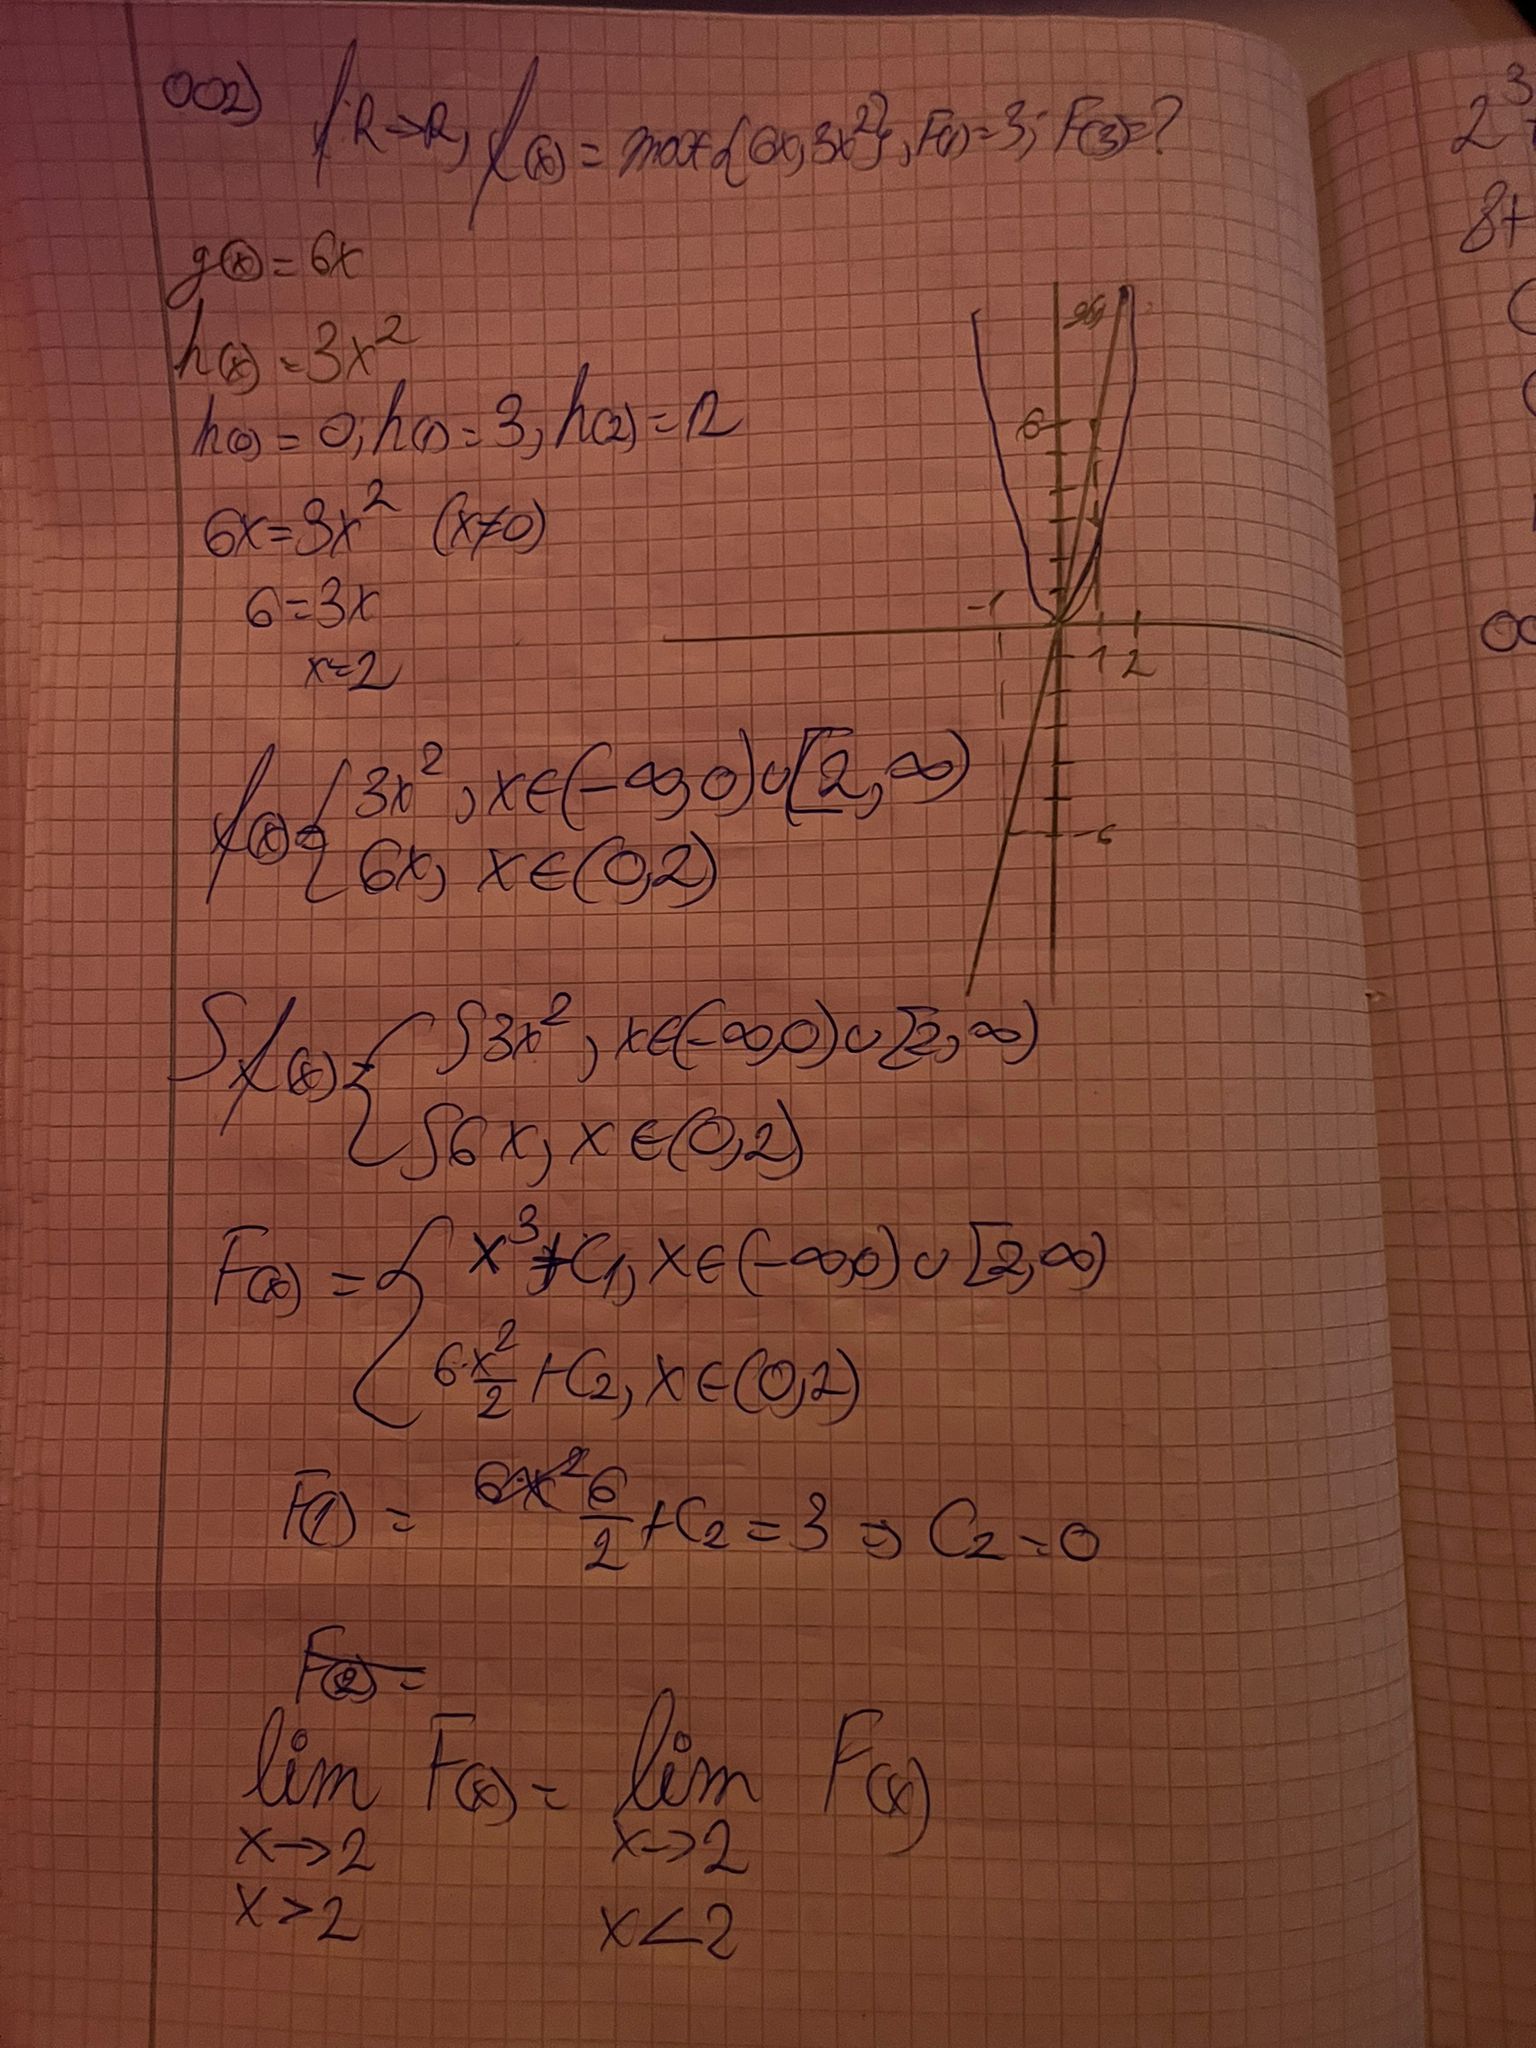 002) f:R→R, f(x) = max{6x, 3x²}, F(1) = 3; F(3) = ?
g(x) = 6x
h(x) = 3x²
h(0) = 0; h(1) = 3; h(2) = 12
6x = 3x² (x≠0)
6 = 3x
x = 2
6
-1
1 2
-6
f(x) = { 3x², x∈(-∞,0)∪[2,∞)
6x, x∈(0,2)
∫f(x) = { ∫3x², x∈(-∞,0)∪[2,∞)
∫6x, x∈(0,2)
F(x) = { x³+C₁, x∈(-∞,0)∪[2,∞)
6·x²/2 + C₂, x∈(0,2)
F(1) = 6/2 + C₂ = 3 ⇒ C₂ = 0
F(2) =
lim F(x) = lim F(x)
x→2 x→2
x>2 x<2
2³
8+